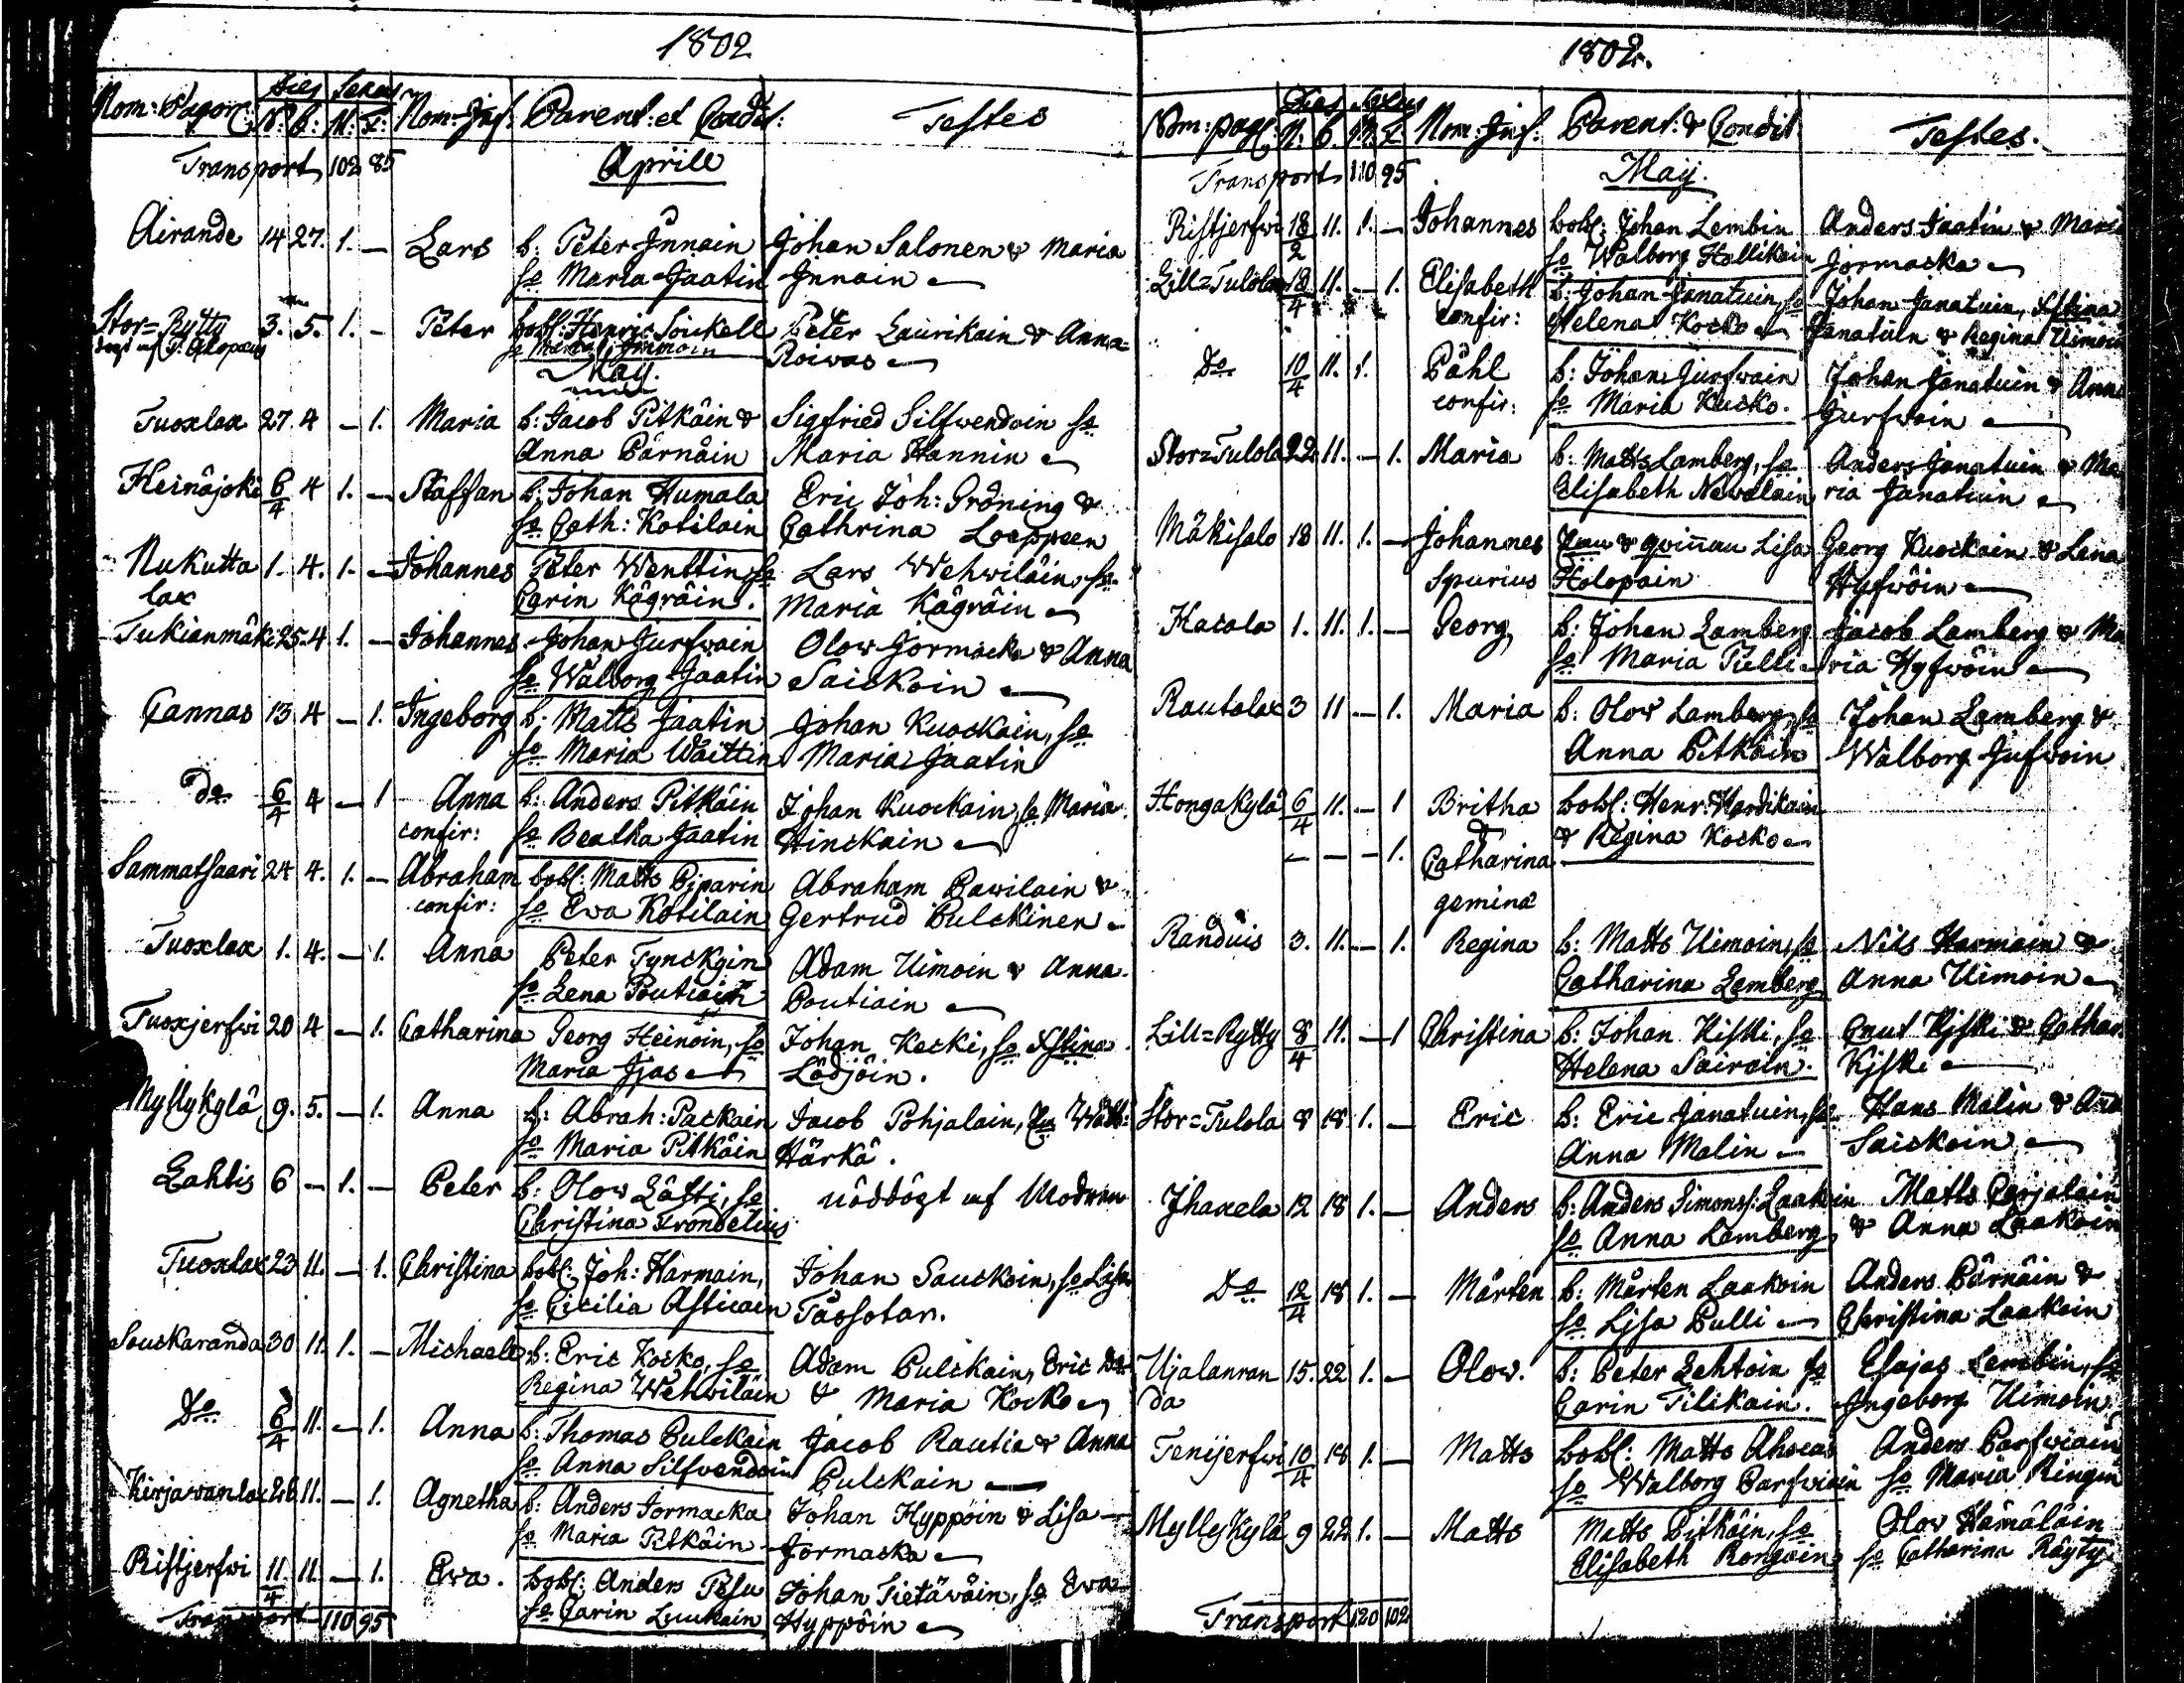 1802
Nom: Pagor: Dies Sexus Nom: Inf: Parent: et Condit: Testes
N: B: M: F:
Transport 102 85 Aprill
Airande 14 27. 1. — Lars b: Peter Innain Johan Salonen & Maria
h: Maria Jaatin Innain
Stor=Rytty 3. 5. 1. — Peter bobl: Henric Soickell Peter Laurikain & Anna
h: Maria Immoin Roivas
May.
Tuoxlax 27. 4 — 1. Maria b: Jacob Pitkäin & Sigfried Silfwendoin
Anna Pärnäin Maria Hannin
Heinäjoki 6/4 4 1. — Staffan b: Johan Humala Eric Joh: Gröning &
Cath: Kotilain Cathrina Loeppeen
Nukutta 1. 4. 1. — Johannes Peter Wenttin Lars Wehwiläin
lax Carin Kägräin. Maria Kägräin
Tukianmäki 25. 4 1. — Johannes Johan Jurfwain Olow Jormacka & Anna
Walborg Jaatin Saickoin
Cannas 13 4 — 1. Ingeborg b: Matts Jaatin Johan Kuockain,
Maria Wäittin Maria Jaatin
Do 6/4 4 — 1 Anna b: Anders Pitkäin Johan Kuockain, Maria
confir: Beatha Jaatin Hinckain
Sammatsaari 24 4. 1. — Abraham bobl: Matts Piparin Abraham Pawilain &
confir: Ewa Kotilain Gertrud Pulckinen
Tuoxlax 1. 4. — 1. Anna Peter Tynckyin Adam Uimoin & Anna
Lena Poutiain Poutiain
Tuoxjerfwi 20 4 — 1. Catharina Georg Heinoin, Johan Kecki, Xstina
Maria Ijas Lödjöin.
Myllykylä 9. 5. — 1. Anna b: Abrah: Packain Jacob Pohjalain,
Maria Pitkäin Härkä.
Lahtis 6 — 1. — Peter b: Olow Lätti, nöddögt af Modren
Christina Tronbelius
Tuoxlax 23 11. — 1. Christina bobl: Joh: Harmain, Johan Sauckoin, Lisa
Cicilia Asticain Tassotar.
Souckaranda 30 11. 1. — Michael b: Eric Kocko, Adam Pulckain, Eric
Regina Wehwiläin & Maria Kocko
Do 6/4 11. — 1. Anna b: Thomas Pulckain Jacob Rautia & Anna
Anna Silfvendoin Pulckain
Kirjavanlax 26 11. — 1. Agnetha b: Anders Jormacka Johan Hyppöin & Lisa
Maria Pitkäin Jormacka
Ristjerfwi 11/4 11. — 1. Ewa. bobl: Anders Pesu Johan Tietäwäin, Ewa
Carin Luukain Hyppöin
Transport 110 95
1802.
Nom: pagl: Dies Sexus Nom: Inf: Parent: & Condit Testes.
N. B. M. F.
Transport 110 95 May.
Ristjerfwi 18/2 11. 1. — Johannes bobl: Johan Lembin Anders Jaatin & Mari
Walborg Hollikain Jormacka
Lill=Tulola 18/4 11. — 1. Elisabeth b: Johan Janatuin, Johan Janatuin, Xstina
confir: Helena Kocko Janatuin & Regina Uimoin
Do 10/4 11. 1. Påhl b: Johan Jurfwain Johan Janatuin & Anna
confir: Maria Kucko. Jurfwain
Stor=Tulola 22 11. — 1. Maria b: Matts Lamberg, Anders Janatuin & Ma
Elisabeth Newalain ria Janatuin
Mäkisalo 18 11. 1. — Johannes & qvinnan Lisa Georg Kuockain & Lena
Spurius Holopain Hyfwöin
Kacola 1. 11. 1. — Georg b: Johan Lamberg Jacob Lamberg & Ma
Maria Pulli ria Hyfwöin
Rautalax 3 11 — 1. Maria b: Olow Lamberg, Johan Lamberg &
Anna Pitkäin Walborg Jufwoin
Hongakylä 6/4 11. — 1 Britha bobl: Henr: Hardikain
& Regina Kocko
— — — 1. Catharina
gemina
Randuis 3. 11. — 1. Regina b: Matts Uimoin, Nils Harmain &
Catharina Lemberg Anna Uimoin
Lill=Rytty 8/4 11. — 1 Christina b: Johan Kiski, Cnut Kiski & Cathar.
Helena Sairain. Kiski
Stor=Tulola 8 18. 1. — Eric b: Eric Janatuin, Hans Malin & Anna
Anna Malin Saickoin
Ihaxela 12 18 1. — Anders b: Anders Simons: Laakoin Matts Carjalain
Anna Lamberg & Anna Laakoin
Do 12/4 18 1. — Mårten b: Mårten Laakoin Anders Pärnäin &
Lisa Pulli Christina Laakoin
Ujalanran 15. 22 1. — Olow. b: Peter Lehtoin Esajas Lembin,
da Carin Tilikain. Ingeborg Uimoin
Tenijerfwi 10/4 18 1. — Matts bobl: Matts Ahocas Anders Parfwiain
Walborg Parfwiain Maria Ringin
Myllykylä 9 22 1. — Matts Matts Pitkäin, Olow Hämäläin
Elisabeth Rongain Catharina Räyty
Transport 120 102